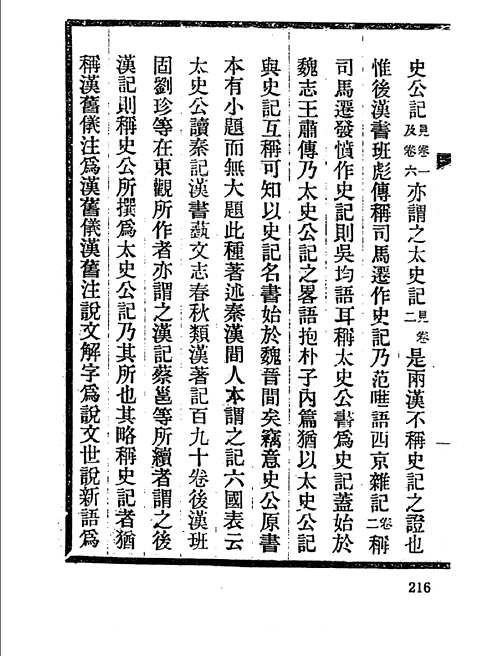 史公記見卷一及卷六亦謂之太史記見卷二是兩漢不稱史記之證也
惟後漢書班彪傳稱司馬遷作史記乃范嘊語西京雜記卷二稱
司馬遷發憤作史記則吳均語耳稱太史公書爲史記蓋始於
魏志王肅傳乃太史公記之畧語抱朴子內篇猶以太史公記
與史記互稱可知以史記名書始於魏晉間矣竊意史公原書
本有小題而無大題此種著述秦漢間人本謂之記六國表云
太史公讀秦記漢書藝文志春秋類漢著記百九十卷後漢班
固劉珍等在東觀所作者亦謂之漢記蔡邕等所續者謂之後
漢記則稱史公所撰爲太史公記乃其所也其略稱史記者猶
稱漢舊儀注爲漢舊儀漢舊注說文解字爲說文世說新語爲
一
216